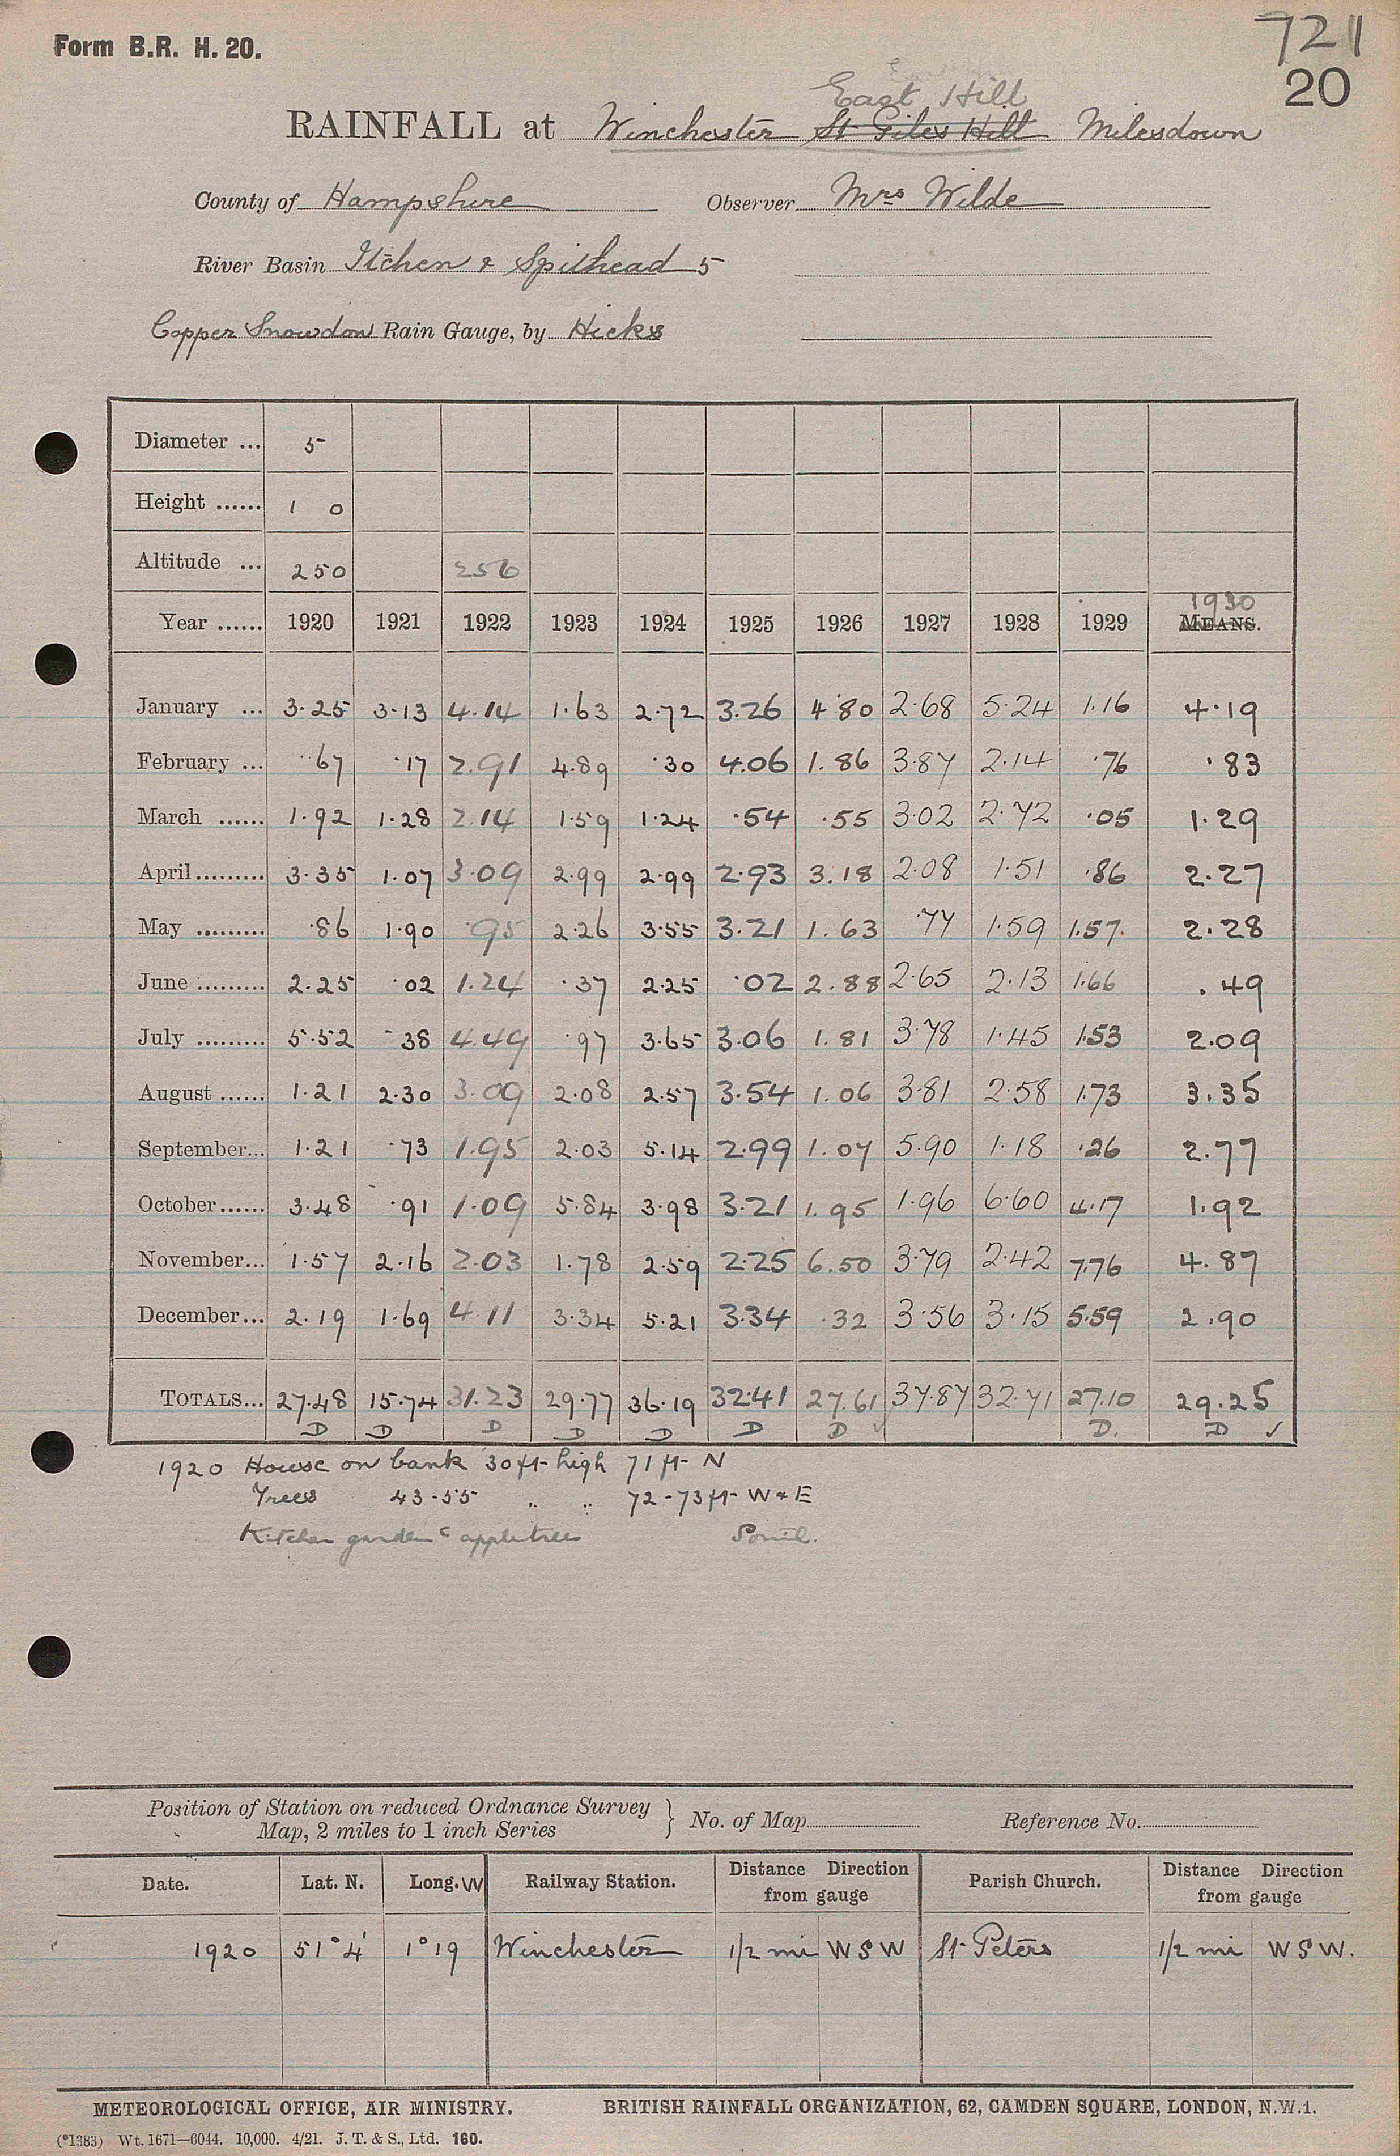 Form B.R. H. 20.
721
20
East Hill
RAINFALL at Winchester St Giles Hill Milesdown
County of Hampshire Observer Mrs Wilde
River Basin Itchen & Spithead 5
Copper Snowdon Rain Gauge, by Hicks
Diameter ... 5
Height ...... 1 0
Altitude ... 250 256
1930
Year ...... 1920 1921 1922 1923 1924 1925 1926 1927 1928 1929 MEANS.
January ... 3.25 3.13 4.14 1.63 2.72 3.26 4.80 2.68 5.24 1.16 4.19
February ... .67 .17 2.91 4.89 .30 4.06 1.86 3.87 2.14 .76 .83
March ...... 1.92 1.28 2.14 1.59 1.24 .54 .55 3.02 2.72 .05 1.29
April ......... 3.35 1.07 3.09 2.99 2.99 2.93 3.18 2.08 1.51 .86 2.27
May ......... .86 1.90 .95 2.26 3.55 3.21 1.63 .77 1.59 1.57. 2.28
June ......... 2.25 .02 1.24 .37 2.25 .02 2.88 2.65 2.13 1.66 .49
July ......... 5.52 .38 4.49 .97 3.65 3.06 1.81 3.78 1.45 1.53 2.09
August ...... 1.21 2.30 3.09 2.08 2.57 3.54 1.06 3.81 2.58 1.73 3.35
September... 1.21 .73 1.95 2.03 5.14 2.99 1.07 5.90 1.18 .26 2.77
October...... 3.48 .91 1.09 5.84 3.98 3.21 1.95 1.96 6.60 4.17 1.92
November... 1.57 2.16 2.03 1.78 2.59 2.25 6.50 3.79 2.42 7.76 4.87
December... 2.19 1.69 4.11 3.34 5.21 3.34 .32 3.56 3.15 5.59 2.90
TOTALS... 27.48 15.74 31.23 29.77 36.19 32.41 27.61 37.87 32.71 27.10 29.25
D D D D D D D ✓ D. D ✓
1920 House on bank 30 ft high 71 ft N
Trees 43-55 " " 72-73 ft W & E
Kitchen garden & appletrees
Position of Station on reduced Ordnance Survey
Map, 2 miles to 1 inch Series } No. of Map Reference No.
Date. Lat. N. Long. W Railway Station. Distance Direction from gauge Parish Church. Distance Direction from gauge
1920 51°4' 1°19 Winchester 1/2 mi W S W St Peters 1/2 mi W S W.
METEOROLOGICAL OFFICE, AIR MINISTRY. BRITISH RAINFALL ORGANIZATION, 62, CAMDEN SQUARE, LONDON, N.W.1.
(*1383) Wt. 1671—6044. 10,000. 4/21. J. T. & S., Ltd. 160.